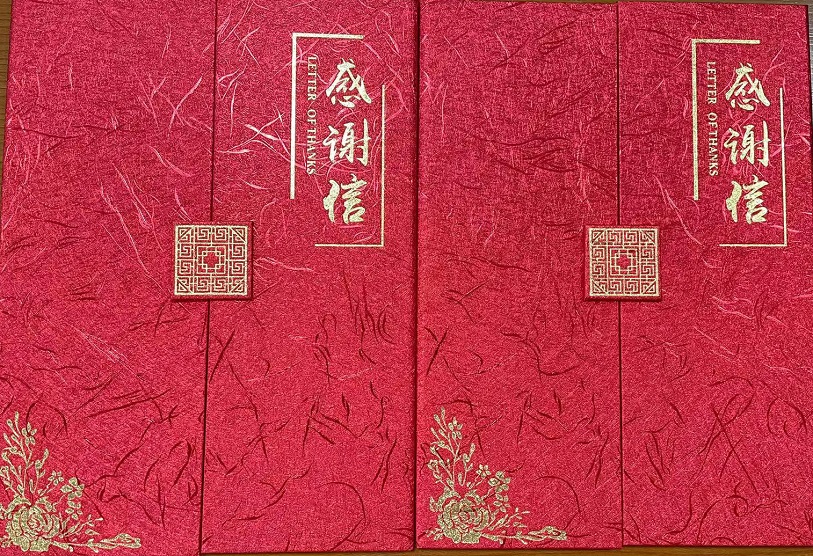 感谢信
LETTER OF THANKS
感谢信
LETTER OF THANKS